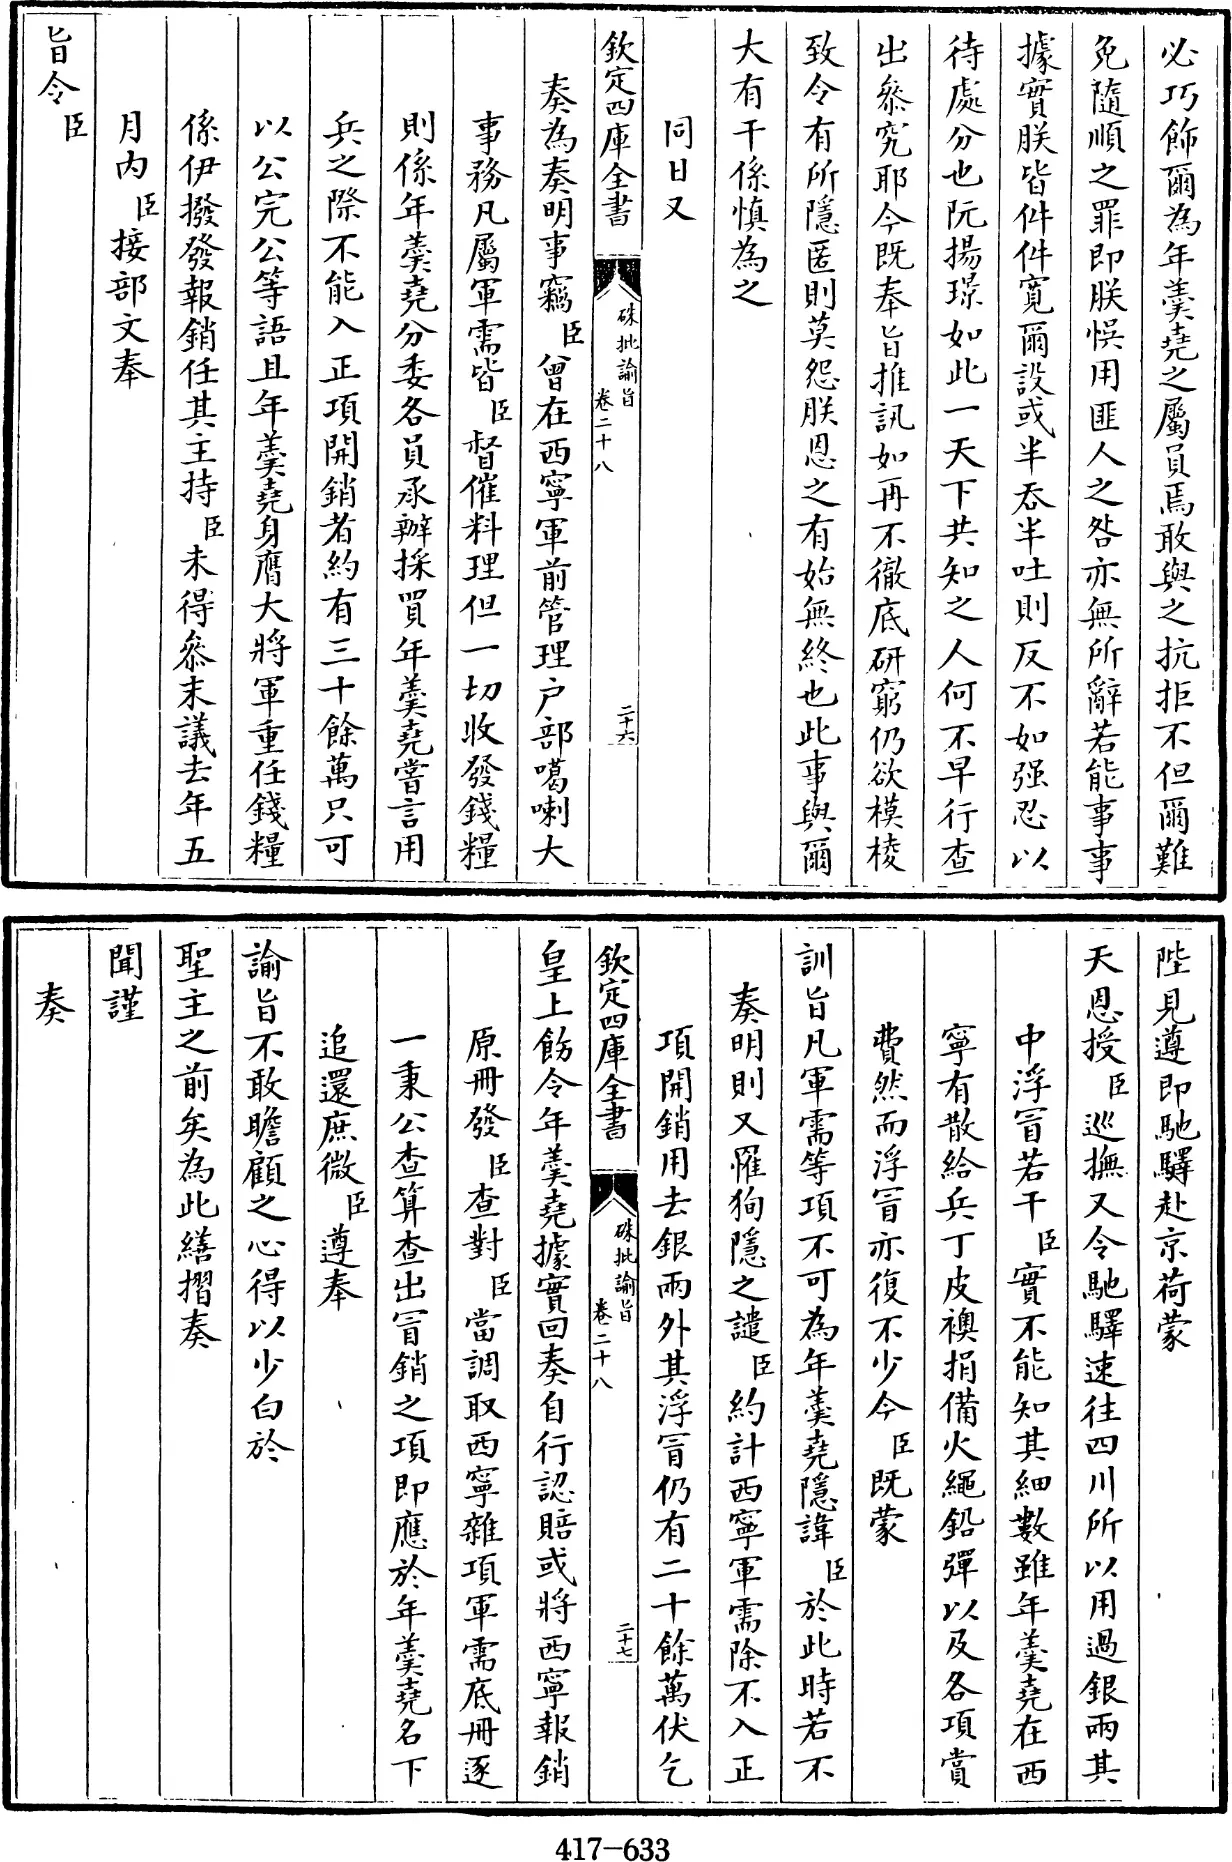 必巧飾爾為年羹堯之屬員焉敢與之抗拒不但爾難
免隨順之罪即朕悞用匪人之咎亦無所辭若能事事
據實朕皆件件寬爾設或半吞半吐則反不如强忍以
待處分也阮揚璟如此一天下共知之人何不早行查
出叅究耶今既奉旨推訊如再不徹底研窮仍欲模棱
致令有所隱匿則莫怨朕恩之有始無終也此事與爾
大有干係慎為之
同日又
欽定四庫全書
硃批諭旨
卷二十八
二十六
奏為奏明事竊臣曾在西寧軍前管理户部噶喇大
事務凡屬軍需皆臣督催料理但一切收發錢糧
則係年羹堯分委各員承辦採買年羹堯嘗言用
兵之際不能入正項開銷者約有三十餘萬只可
以公完公等語且年羹堯身膺大將軍重任錢糧
係伊撥發報銷任其主持臣未得叅末議去年五
月内臣接部文奉
旨令臣
陛見遵即馳驛赴京荷蒙
天恩授臣巡撫又令馳驛速往四川所以用過銀兩其
中浮冒若干臣實不能知其細數雖年羹堯在西
寧有散給兵丁皮襖捐備火繩鉛彈以及各項賞
費然而浮冒亦復不少今臣既蒙
訓旨凡軍需等項不可為年羹堯隱諱臣於此時若不
奏明則又罹狥隱之譴臣約計西寧軍需除不入正
項開銷用去銀兩外其浮冒仍有二十餘萬伏乞
欽定四庫全書
硃批諭旨
卷二十八
二十七
皇上飭令年羹堯據實回奏自行認賠或將西寧報銷
原冊發臣查對臣當調取西寧雜項軍需底冊逐
一秉公查算查出冒銷之項即應於年羹堯名下
追還庶微臣遵奉
諭旨不敢瞻顧之心得以少白於
聖主之前矣為此繕摺奏
聞謹
奏
417-633